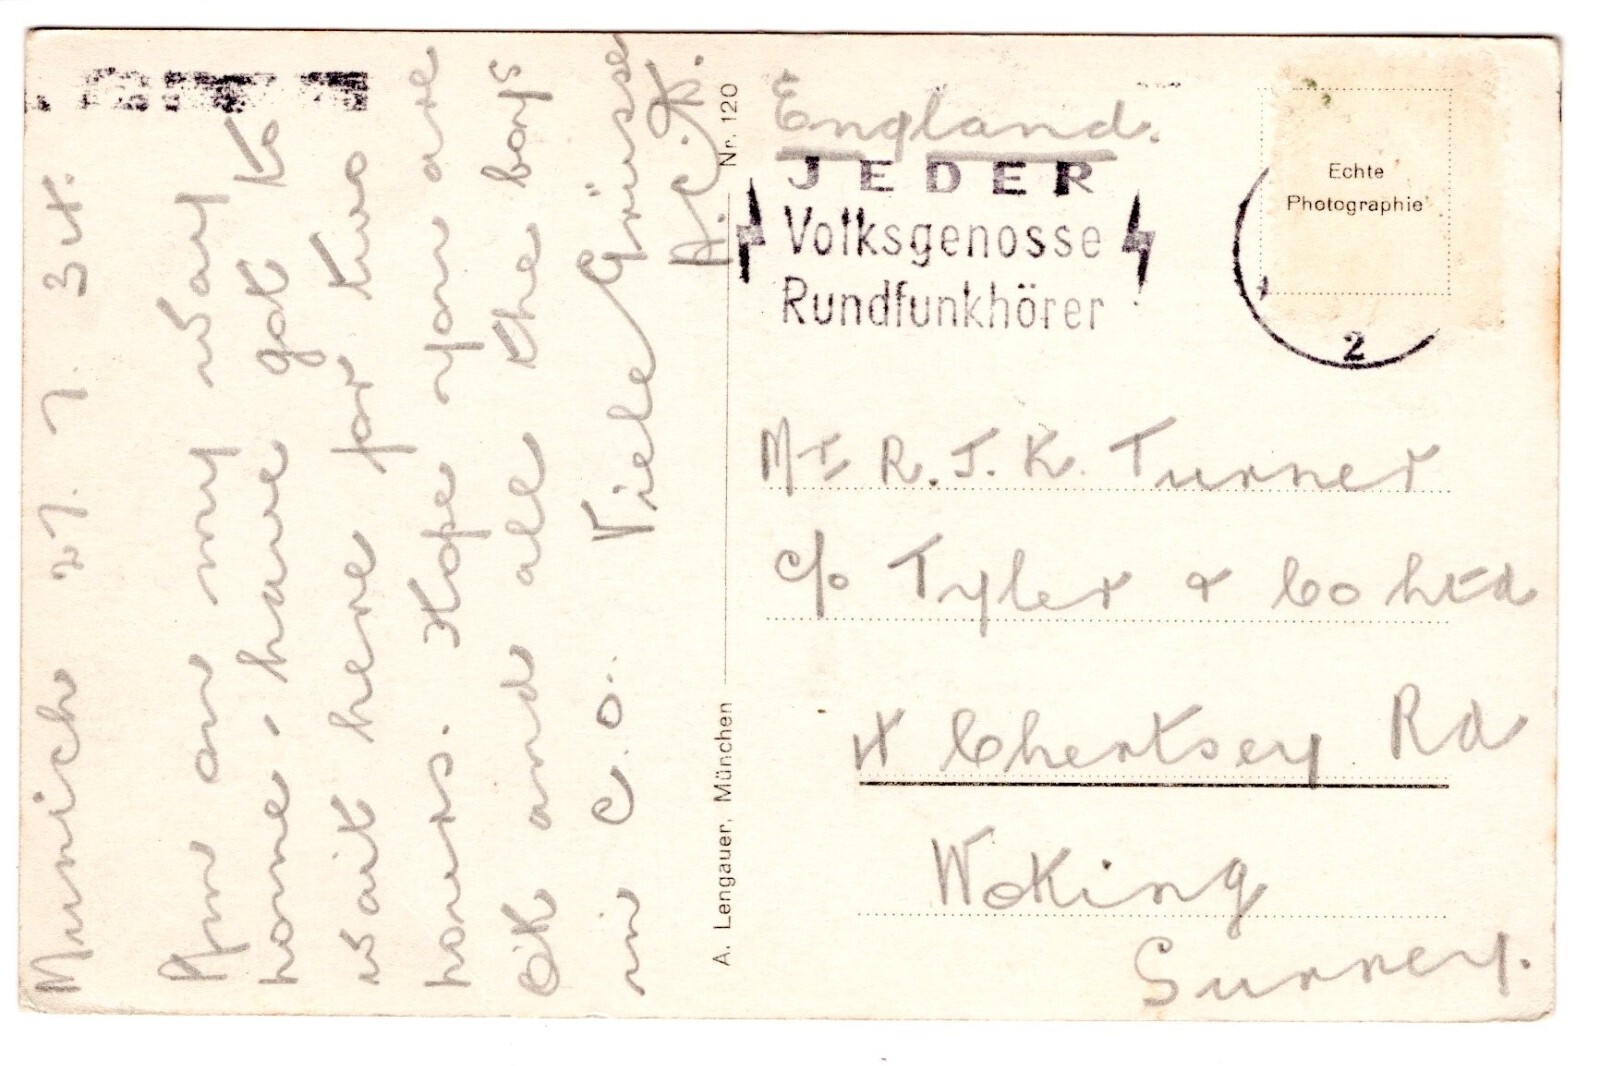 Munich 27. 7. 34.
Am on my way
home, have got to
wait here for two
hours. Hope you are
OK and all the boys
in C.O. Viele Grüsse
A.C.K.
A. Lengauer, München Nr. 120
England.
JEDER
Volksgenosse
Rundfunkhörer
2
Echte
Photographie
Mr R. J. K. Turner
c/o Tyler & Co Ltd
4 Chertsey Rd
Woking
Surrey.